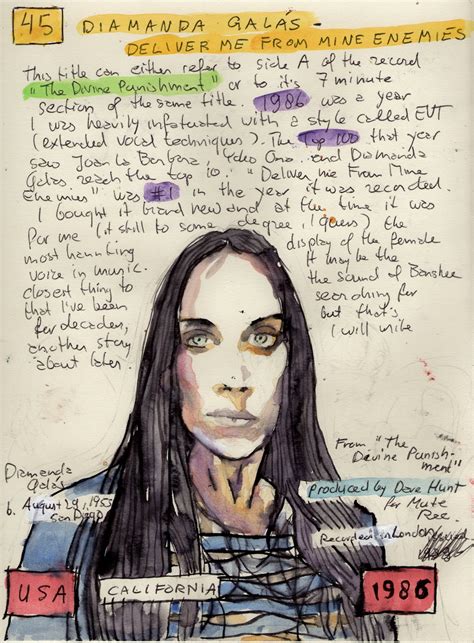 45 DIAMANDA GALAS -
DELIVER ME FROM MINE ENEMIES
This title can either refer to side A of the record
"The Divine Punishment" or to it's 7 minute
section of the same title. 1986 was a year
I was heavily infatuated with a style called EVT
(extended vocal techniques). The Top 100 that year
saw Joan La Barbara, Yoko Ono and Diamanda
Galas reach the top 10. "Deliver me From Mine
Enemies" was #1 in the year it was recorded.
I bought it brand new and at the time it was
for me (it still to some degree, I guess) the
most haunting display of the female
voice in music. It may be the
closest thing to the sound of Banshee
that I've been searching for
for decades, but that's
another story I will write
about later.
From "The
Devine Punish-
ment"
Diamanda
Galás
b. August 29, 1955
San Diego
Produced by Dave Hunt
for Mute
Rec.
Recorded in London
USA
CALIFORNIA
1986